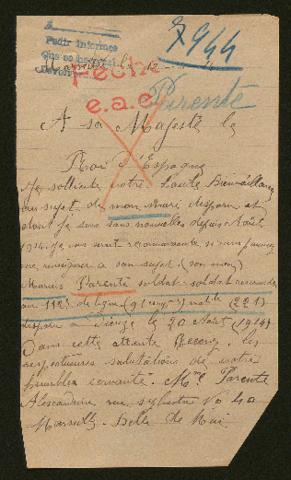 A
Pedir informes
que se
7944
Marseille le 12
Fecha
e.a.e. Parente
A sa Majesté le
Roi d'Espagne
Je sollicite votre haute Bienveillance
au sujet de mon mari disparu et
dont je suis sans nouvelles depuis Août
1914 je vous serait reconnaissante si vous pouviez
me renseigner a son sujet (son nom)
Marius Parente soldat réserviste
au 112e de ligne (9 cie) mtle (221)
disparu a Dieuze le 20 Août (1914)
Dans cette attente Recevez les
respectueuses salutations de votre
humble servante. Mme Parente
Alexandrine rue
Marseille Belle de Mai